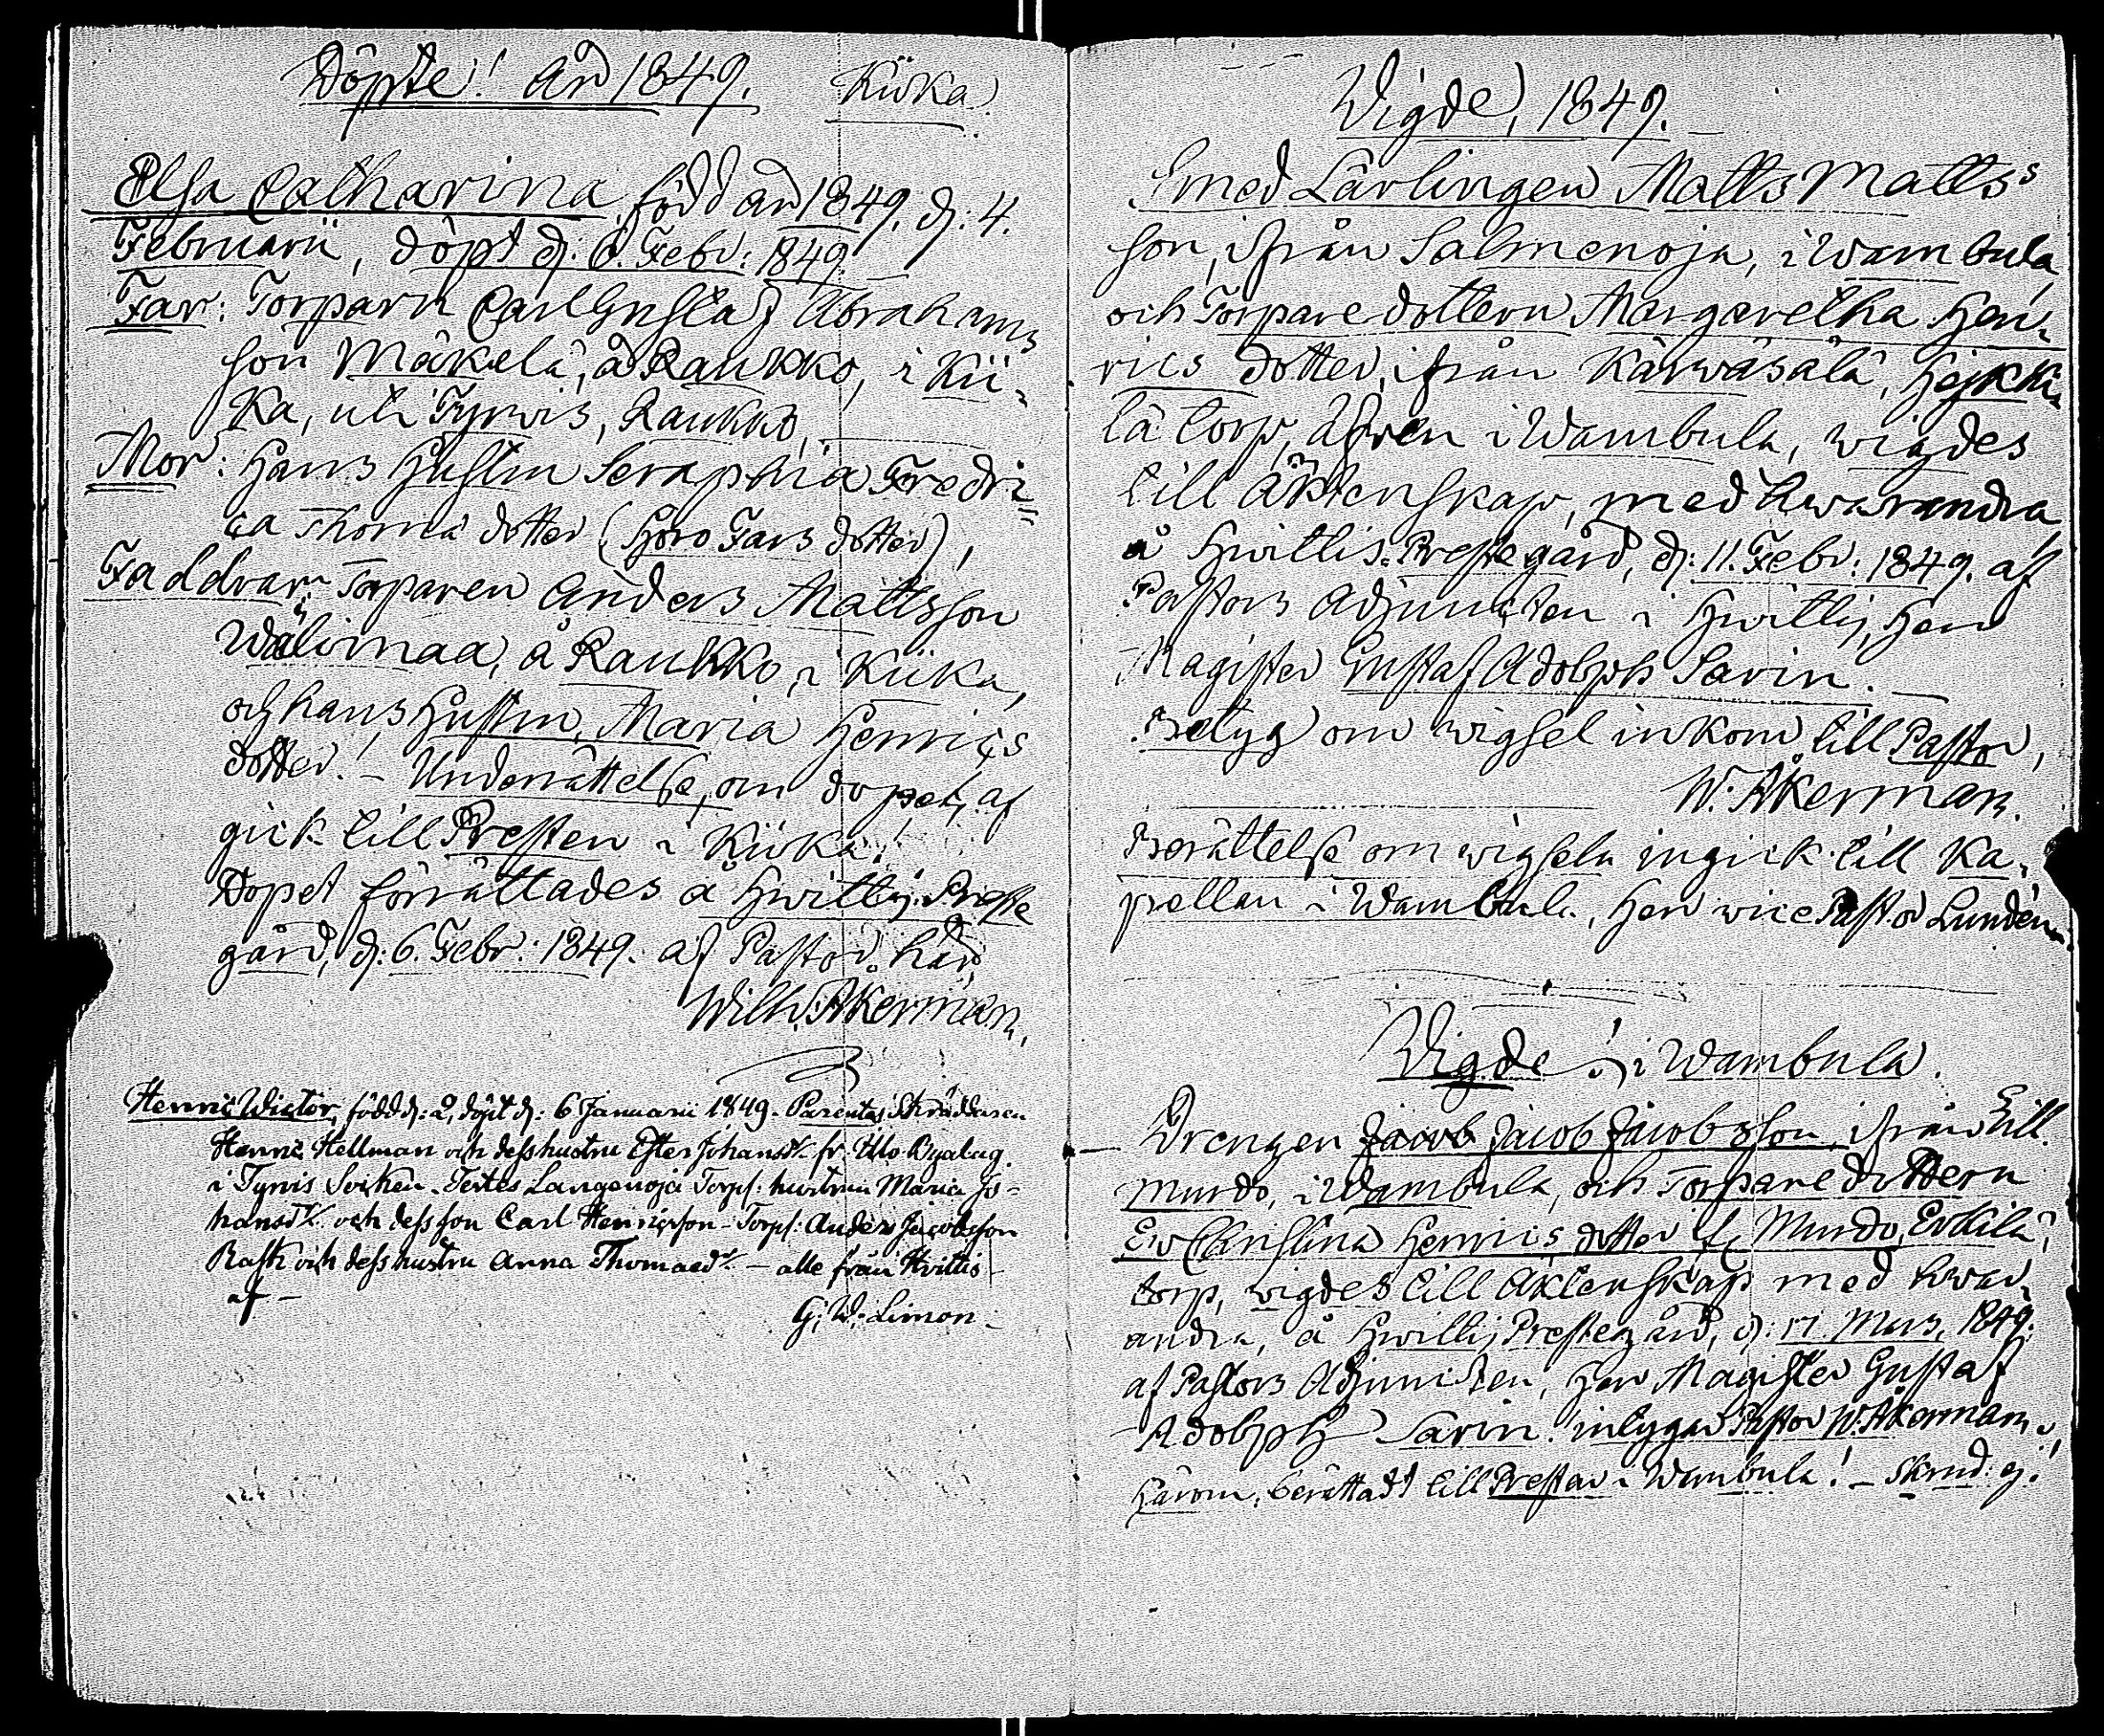 Döpte! År 1849. Kiika
Elsa Catharina, född år 1849. d: 4.
Februarii, döpt d: 6. Febr: 1849. —
Far: Torparn Carl Gustaf Abrahams
son Mäkelä, å Raukko, i Kii-
ka, uti Tyrvis, Raukko,
Mor: Hans Hustru Seraphia Fredri-
ca Thomä dotter (
Faddrar: Torparen Anders Mattsson
Wälimaa, å Raukko, i Kiika,
och hans Hustru, Maria Henrics
dotter! — Underrättelse, om dopet, af
gick till Presten i Kiika!
Dopet förrättades å Hvittis Preste
gård, d: 6. Febr: 1849. af Pastor här
Wilh. Åkerman,
Henric Wictor, född d: 2, döpt d: 6 Januarii 1849. Parentes Skräddaren
Henric Hellman och dess hustru Ester Johansdr fr. Ulo Byalag
i Tyrvis Socken. Testes Langenoja Torps: hustrun Maria Jo-
hansdr och dess son Carl Henricsson — Torps: Anders Jacobsson
Rask och dess hustru Anna Thomaedr — alle från Hvittis —
af —
G. W. Limon.
Vigde, 1849. —
Smed Lärlingen Matts Matts
son, ifrån Salmenoja, i Wambula
och Torpare dottern Margaretha Hen-
rics dotter, ifrån Kärwäsälä, Hejkki-
lä torp, äfven i Wambula, wigdes
till Äktenskap, med hwarandra
å Hwittis Prestegård, d: 11. Febr: 1849. af
Pastors Adjuncten i Hwittis, Herr
Magister Gustaf Adolph Sarin. —
Betyg om wigsel inkom till Pastor,
W. Åkerman.
Berättelse om wigseln ingick till Ka-
pellan i Wambula, Herr vice Pastor Lundén.
Vigde! i Wambula.
— Drengen Jacob Jacob Jacobsson, ifrån
Murdo, i Wambula, och Torpare dottern
Ev Christina Henrics dotter if. Murdo, Erkilä
torp, wigdes till Äktenskap med hwar-
andra, å Hwittis Prestegård, d: 11. Mars, 1849.
af Pastors Adjuncten, Herr Magister Gustaf
Adolph Sarin! intygar Pastor W. Åkerman,
Härom, berättadt till Prestar i Wambula! —